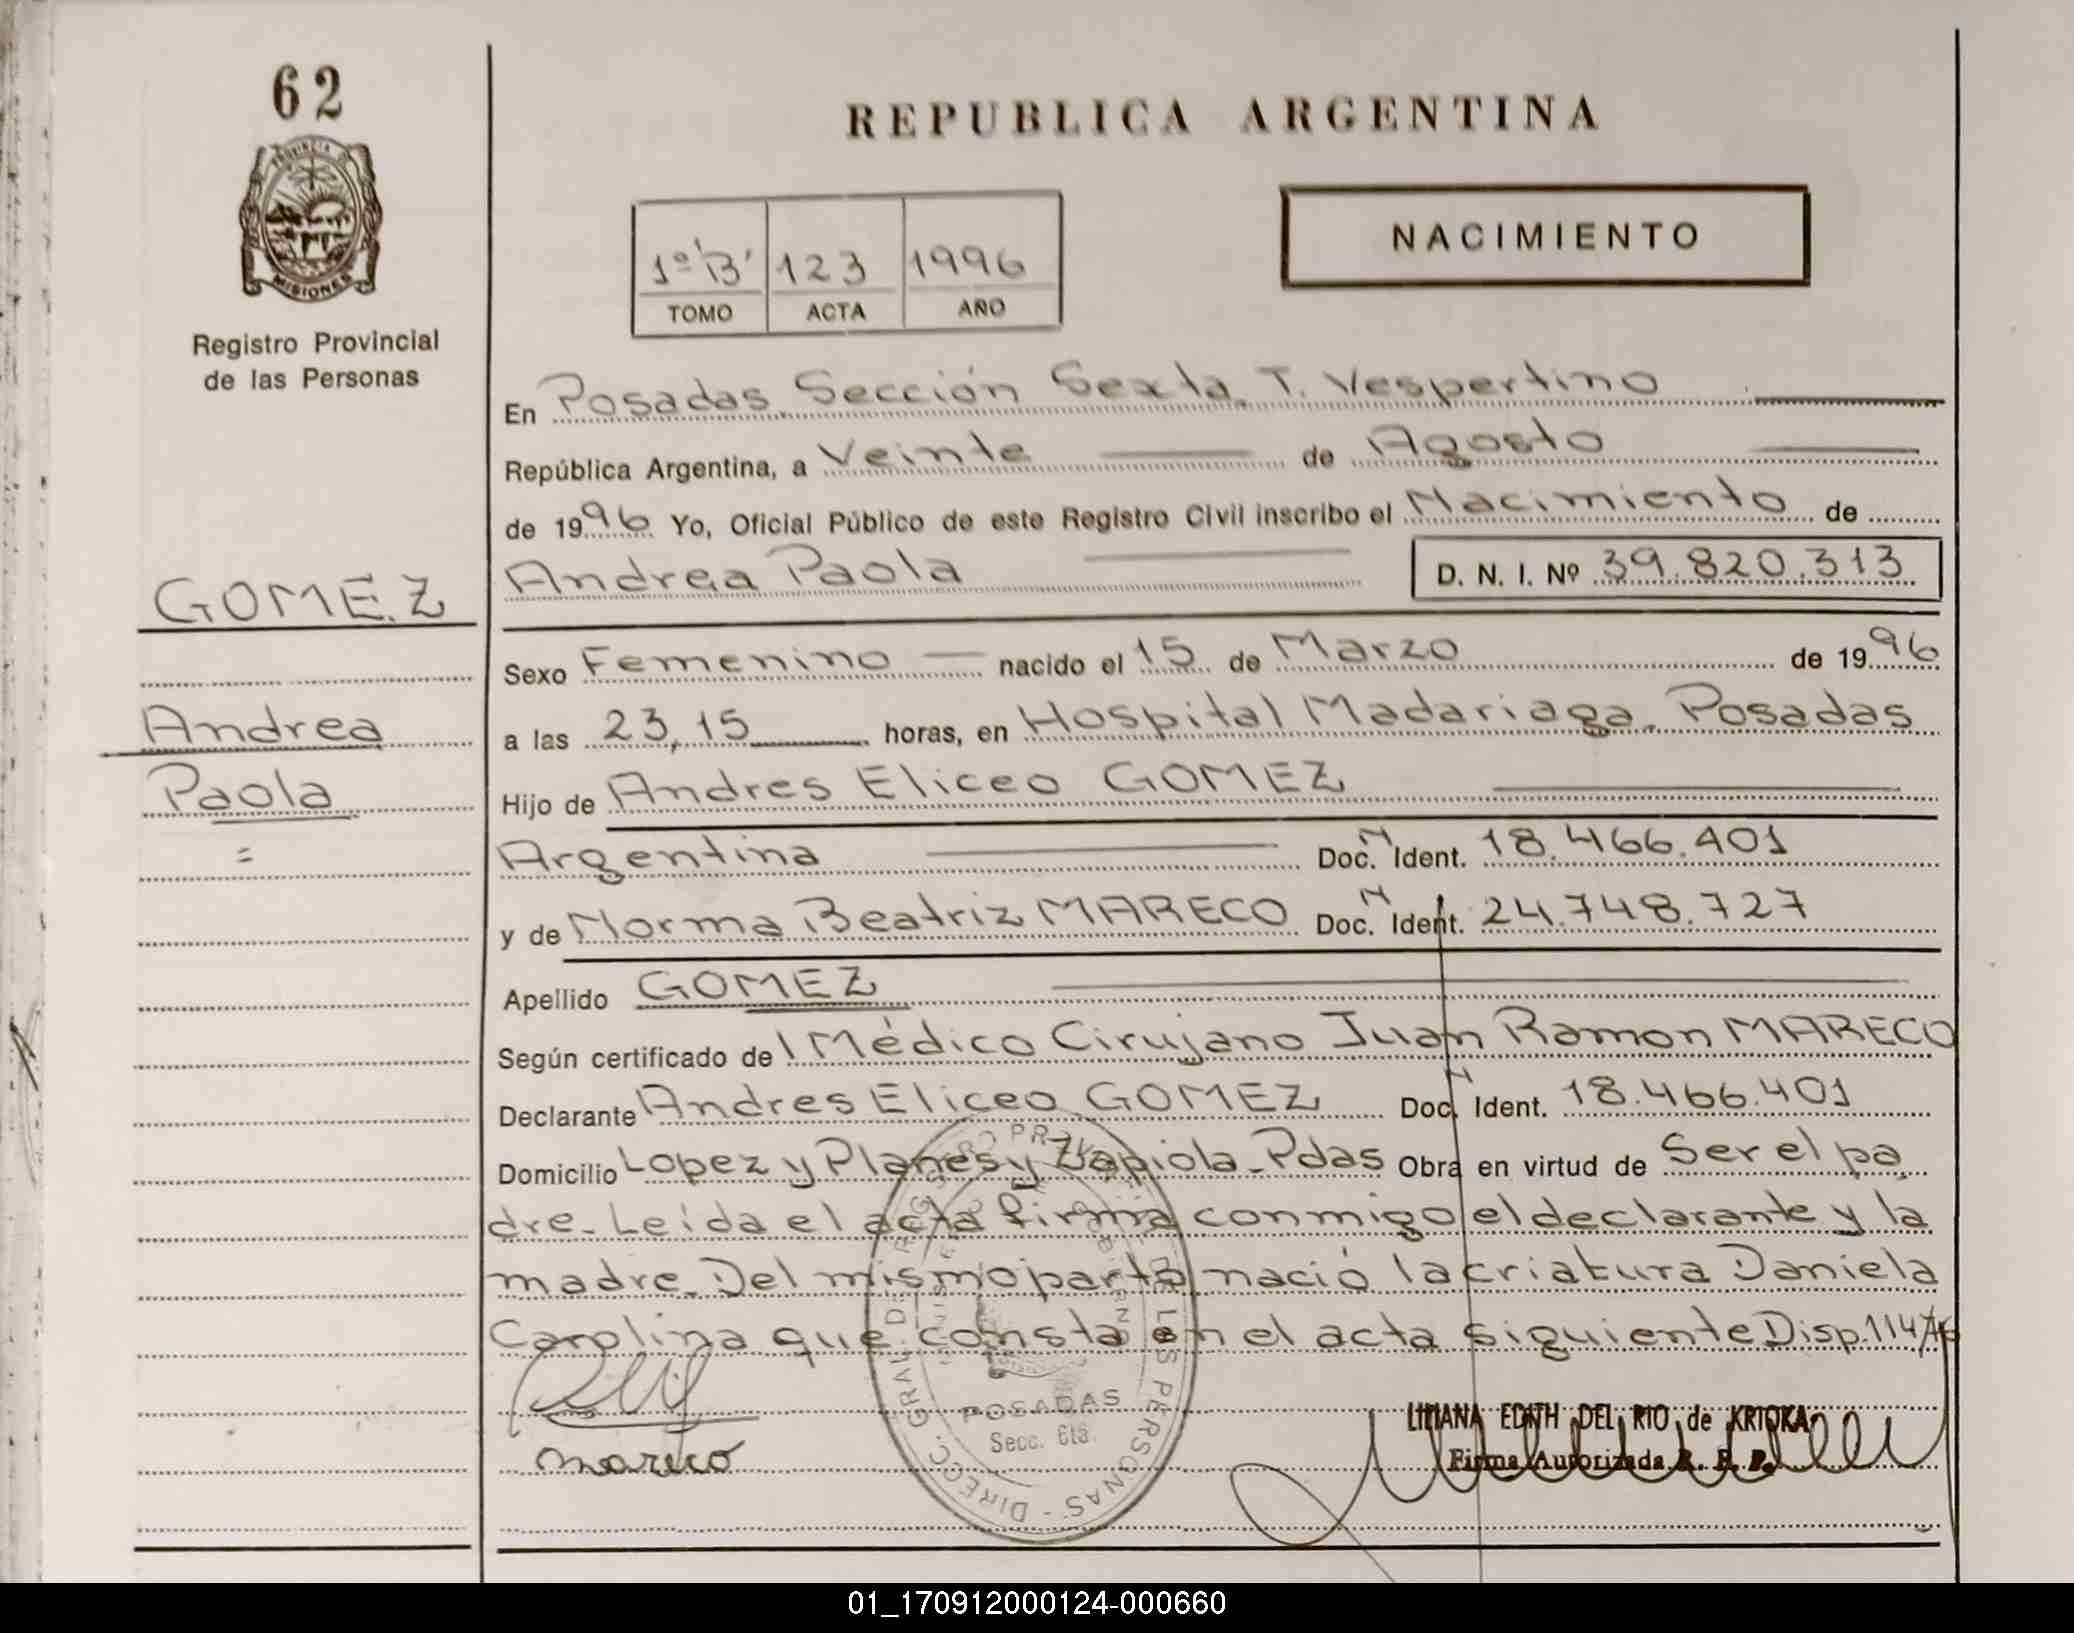 62
PROVINCIA DE
MISIONES
Registro Provincial
de las Personas
GOMEZ
Andrea
Paola
=
REPUBLICA ARGENTINA
1º 'B' 123 1996
TOMO ACTA AÑO
NACIMIENTO
En Posadas Sección Sexta. T. Vespertino
República Argentina, a Veinte de Agosto
de 1996 Yo, Oficial Público de este Registro Civil inscribo el Nacimiento de
Andrea Paola D. N. I. Nº 39.820.313
Sexo Femenino nacido el 15 de Marzo de 1996
a las 23,15 horas, en Hospital Madariaga. Posadas
Hijo de Andres Eliceo GOMEZ
Argentina Doc. N Ident. 18.466.401
y de Norma Beatriz MARECO Doc. N Ident. 24.748.727
Apellido GOMEZ
Según certificado de l Médico Cirujano Juan Ramon MARECO
Declarante Andres Eliceo GOMEZ Doc. N Ident. 18.466.401
Domicilio Lopez y Planes y Zapiola. Pdas Obra en virtud de Ser el pa
dre. Leída el acta firma conmigo el declarante y la
madre. Del mismo parto nació la criatura Daniela
Carolina que consta en el acta siguiente Disp. 114/96
POSADAS
Secc. 6ta.
mareco
LILIANA EDITH DEL RIO de KRIOKA
Firma Autorizada R. P. P.
01_170912000124-000660